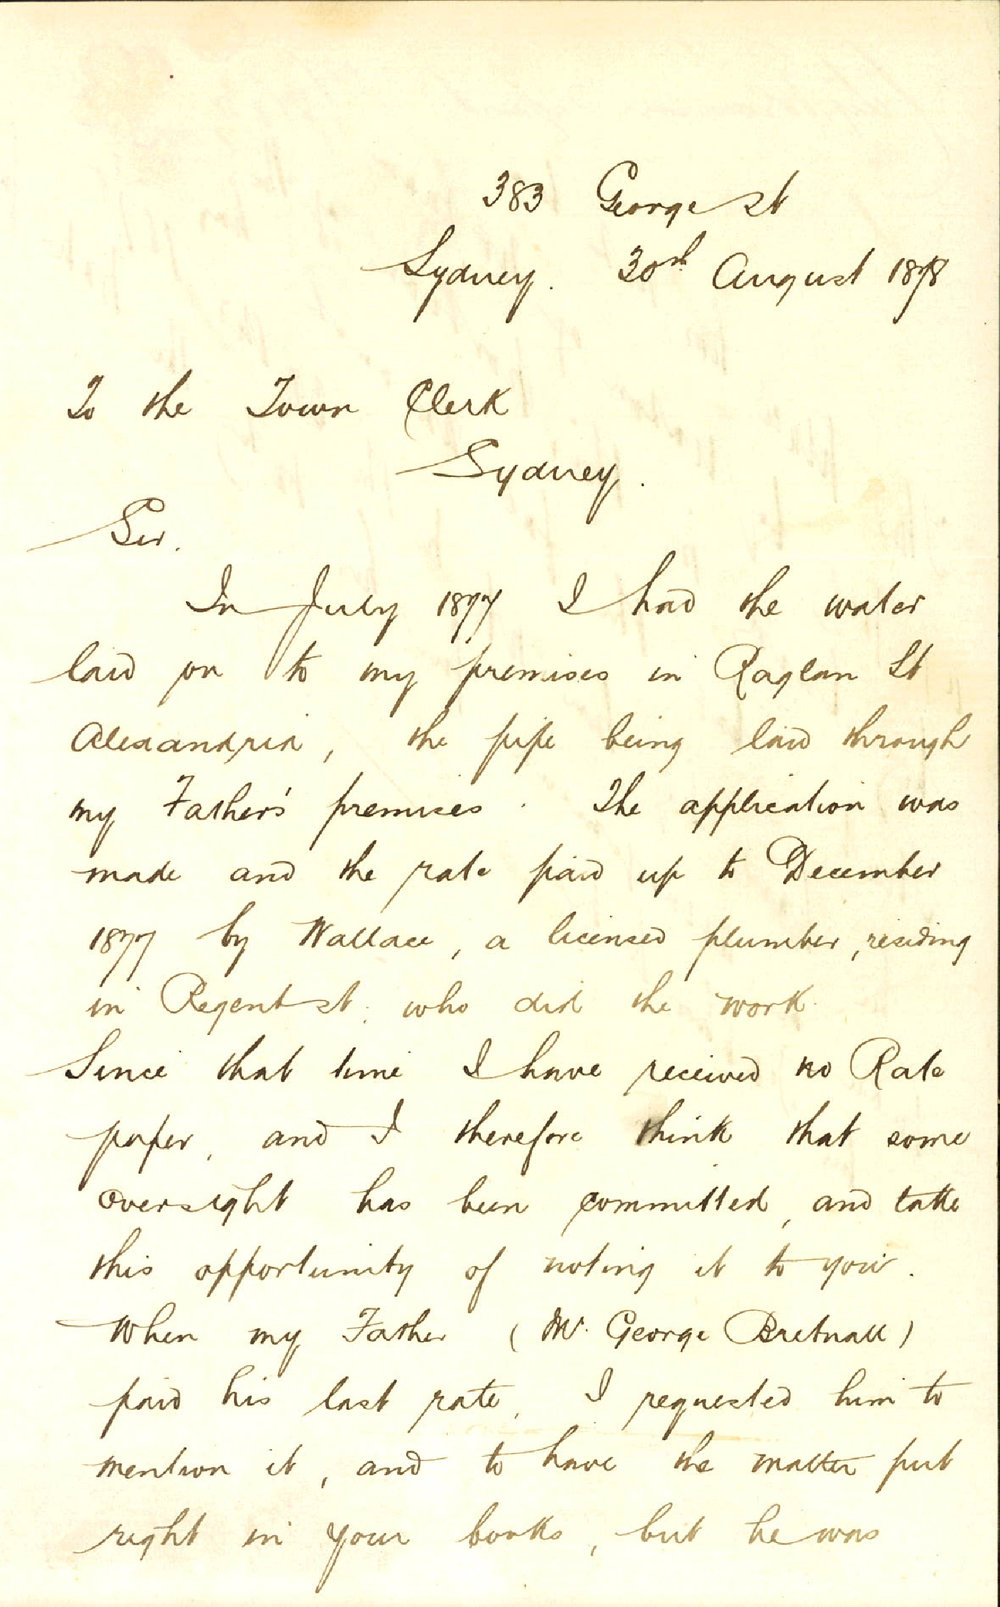 383 George st
Sydney. 30th August 1878
To the Town Clerk
Sydney.
Sir.
In July 1877 I had the water
laid on to my premises in Raglan St
Alexandria, the pipe being laid through
my Father's premises. The application was
made and the rate paid up to December
1877 by Wallace, a licensed plumber, residing
in Regent st. who did the work.
Since that time I have received no Rate
paper, and I therefore think that some
oversight has been committed, and take
this opportunity of noting it to you.
When my Father (Mr. George Bretnall)
paid his last rate, I requested him to
mention it, and to have the matter put
right in your books, but he was